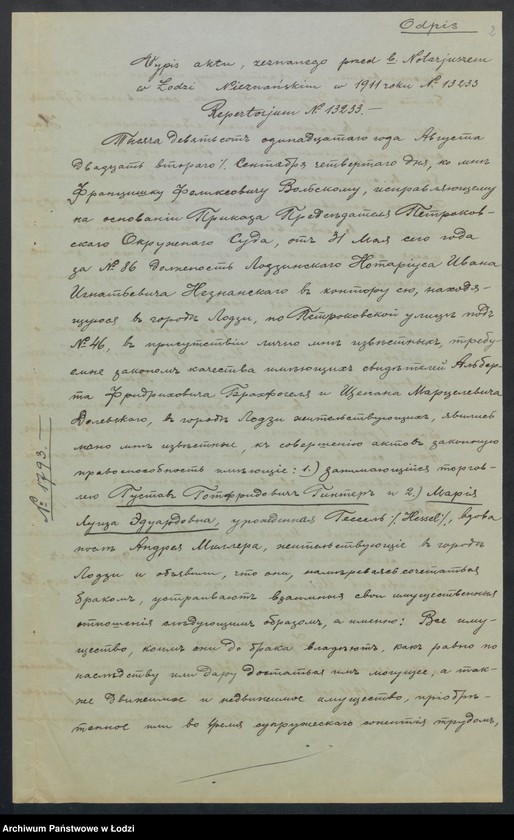 Odpis
2
Wypis aktu, zeznanego przed b. Notarjuszem
w Łodzi Nieznańskim w 1911 roku № 13233
Repertorjum № 13233. —
Тысяча девятьсотъ одинадцатаго года Августа
двадцать втораго /. Сентября четвертаго дня, ко мнѣ
Францишку Феликсовичу Вольскому, исправляющему
на основаніи Приказа Предсѣдателя Петроков-
скаго Окружнаго Суда, отъ 31 Мая сего года
за № 86 должность Лодзинскаго Нотаріуса Ивана
Игнатьевича Незнанскаго въ контору ею, находя-
щуюся въ городѣ Лодзи, по Петроковской улицѣ подъ
№ 46, въ присутствіи лично мнѣ извѣстныхъ, требу-
емые закономъ качества имѣющихъ свидѣтелей Альбер-
та Фридриховича и Щепана Марцелевича
Долевскаго, въ городѣ Лодзи жительствующихъ, явились
мнѣ извѣстные, къ совершенію актовъ законную
правоспособность имѣющіе: 1.) занимающійся торгов-
лею Густавъ Готфридовичъ Гинтеръ и 2.) Марія
Луиза Эдуардовна, урожденная Гессель /: Hessel /:, вдова
послѣ Андрея Миллера, жительствующіе въ городѣ
Лодзи и объявили, что они, намѣреваясь сочетаться
бракомъ, устраиваютъ взаимныя свои имущественныя
отношенія слѣдующимъ образомъ, а именно: Все иму-
щество, коимъ они до брака владѣютъ, какъ равно по
наслѣдству или дару достаться имъ могущее, а так-
же движимое и недвижимое имущество, пріобрѣ-
тенное ими во время супружескаго сожитія трудомъ,
№ 1793. —
Archiwum Państwowe w Łodzi